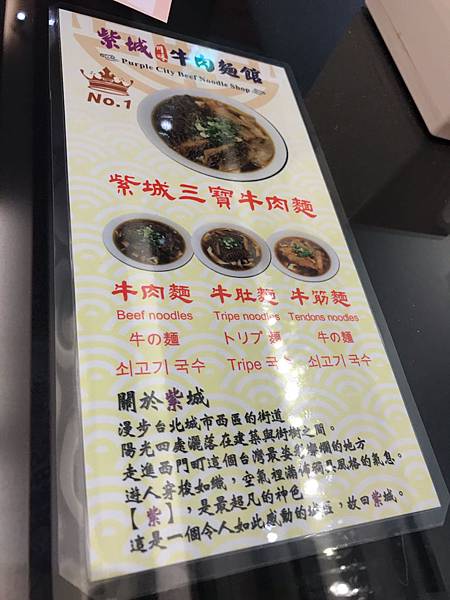 紫城牛肉麵館
Purple City Beef Noodle Shop
No.1
紫城三寶牛肉麵
牛肉麵 牛肚麵 牛筋麵
Beef noodles Tripe noodles Tendons noodles
牛の麵 トリプ 麵 牛の麵
쇠고기 국수 Tripe 국수 쇠고기 국수
關於紫城
漫步台北城市西區的街道
陽光四處灑落在建築與街樹之間。
走進西門町這個台灣最姿彩燦爛的地方
遊人穿梭如織，空氣裡滿佈獨具風格的氣息。
【紫】，是最超凡的神色
這是一個令人如此感動的地區，故曰紫城。